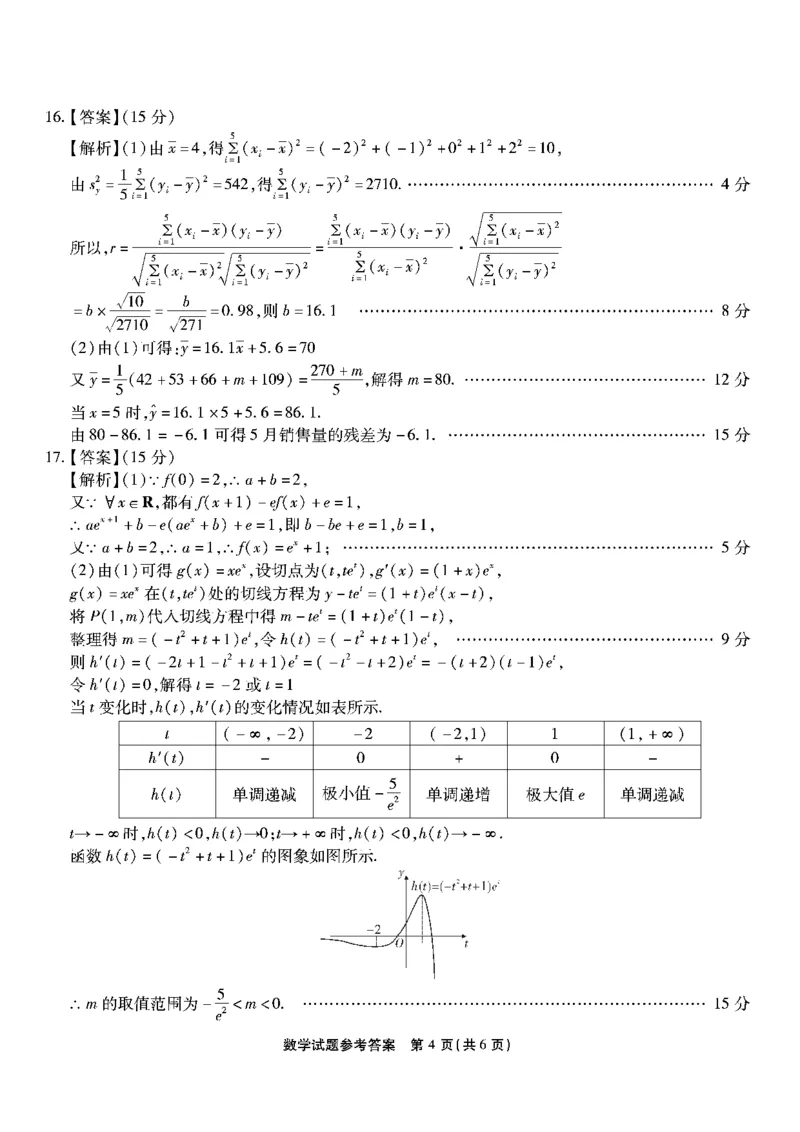 16.【答案】(15 分)
【解析】(1)由 x̄=4,得 ∑_{i=1}^{5}(x_i-x̄)²=(-2)²+(-1)²+0²+1²+2²=10,
由 s_y²=1/5 ∑_{i=1}^{5}(y_i-ȳ)²=542,得 ∑_{i=1}^{5}(y_i-ȳ)²=2710. …… 4 分
所以,r=∑_{i=1}^{5}(x_i-x̄)(y_i-ȳ)/(√(∑_{i=1}^{5}(x_i-x̄)²)√(∑_{i=1}^{5}(y_i-ȳ)²))=∑_{i=1}^{5}(x_i-x̄)(y_i-ȳ)/∑_{i=1}^{5}(x_i-x̄)²·√(∑_{i=1}^{5}(x_i-x̄)²)/√(∑_{i=1}^{5}(y_i-ȳ)²)
=b×√10/√2710=b/√271=0.98,则 b=16.1 …… 8 分
(2)由(1)可得:ȳ=16.1x̄+5.6=70
又 ȳ=1/5(42+53+66+m+109)=(270+m)/5,解得 m=80. …… 12 分
当 x=5 时,ŷ=16.1×5+5.6=86.1.
由 80-86.1=-6.1 可得 5 月销售量的残差为-6.1. …… 15 分
17.【答案】(15 分)
【解析】(1)∵f(0)=2,∴a+b=2,
又∵ ∀x∈R,都有 f(x+1)-ef(x)+e=1,
∴ae^{x+1}+b-e(ae^x+b)+e=1,即 b-be+e=1,b=1,
又∵a+b=2,∴a=1,∴f(x)=e^x+1; …… 5 分
(2)由(1)可得 g(x)=xe^x,设切点为(t,te^t),g′(x)=(1+x)e^x,
g(x)=xe^x 在(t,te^t)处的切线方程为 y-te^t=(1+t)e^t(x-t),
将 P(1,m)代入切线方程中得 m-te^t=(1+t)e^t(1-t),
整理得 m=(-t²+t+1)e^t,令 h(t)=(-t²+t+1)e^t, …… 9 分
则 h′(t)=(-2t+1-t²+t+1)e^t=(-t²-t+2)e^t=-(t+2)(t-1)e^t,
令 h′(t)=0,解得 t=-2 或 t=1
当 t 变化时,h(t),h′(t)的变化情况如表所示.
t (-∞,-2) -2 (-2,1) 1 (1,+∞)
h′(t) - 0 + 0 -
h(t) 单调递减 极小值-5/e² 单调递增 极大值 e 单调递减
t→-∞时,h(t)<0,h(t)→0;t→+∞时,h(t)<0,h(t)→-∞.
函数 h(t)=(-t²+t+1)e^t 的图象如图所示.
y
h(t)=(-t²+t+1)e^t
-2
O
t
∴m 的取值范围为-5/e²<m<0. …… 15 分
数学试题参考答案 第 4 页(共 6 页)